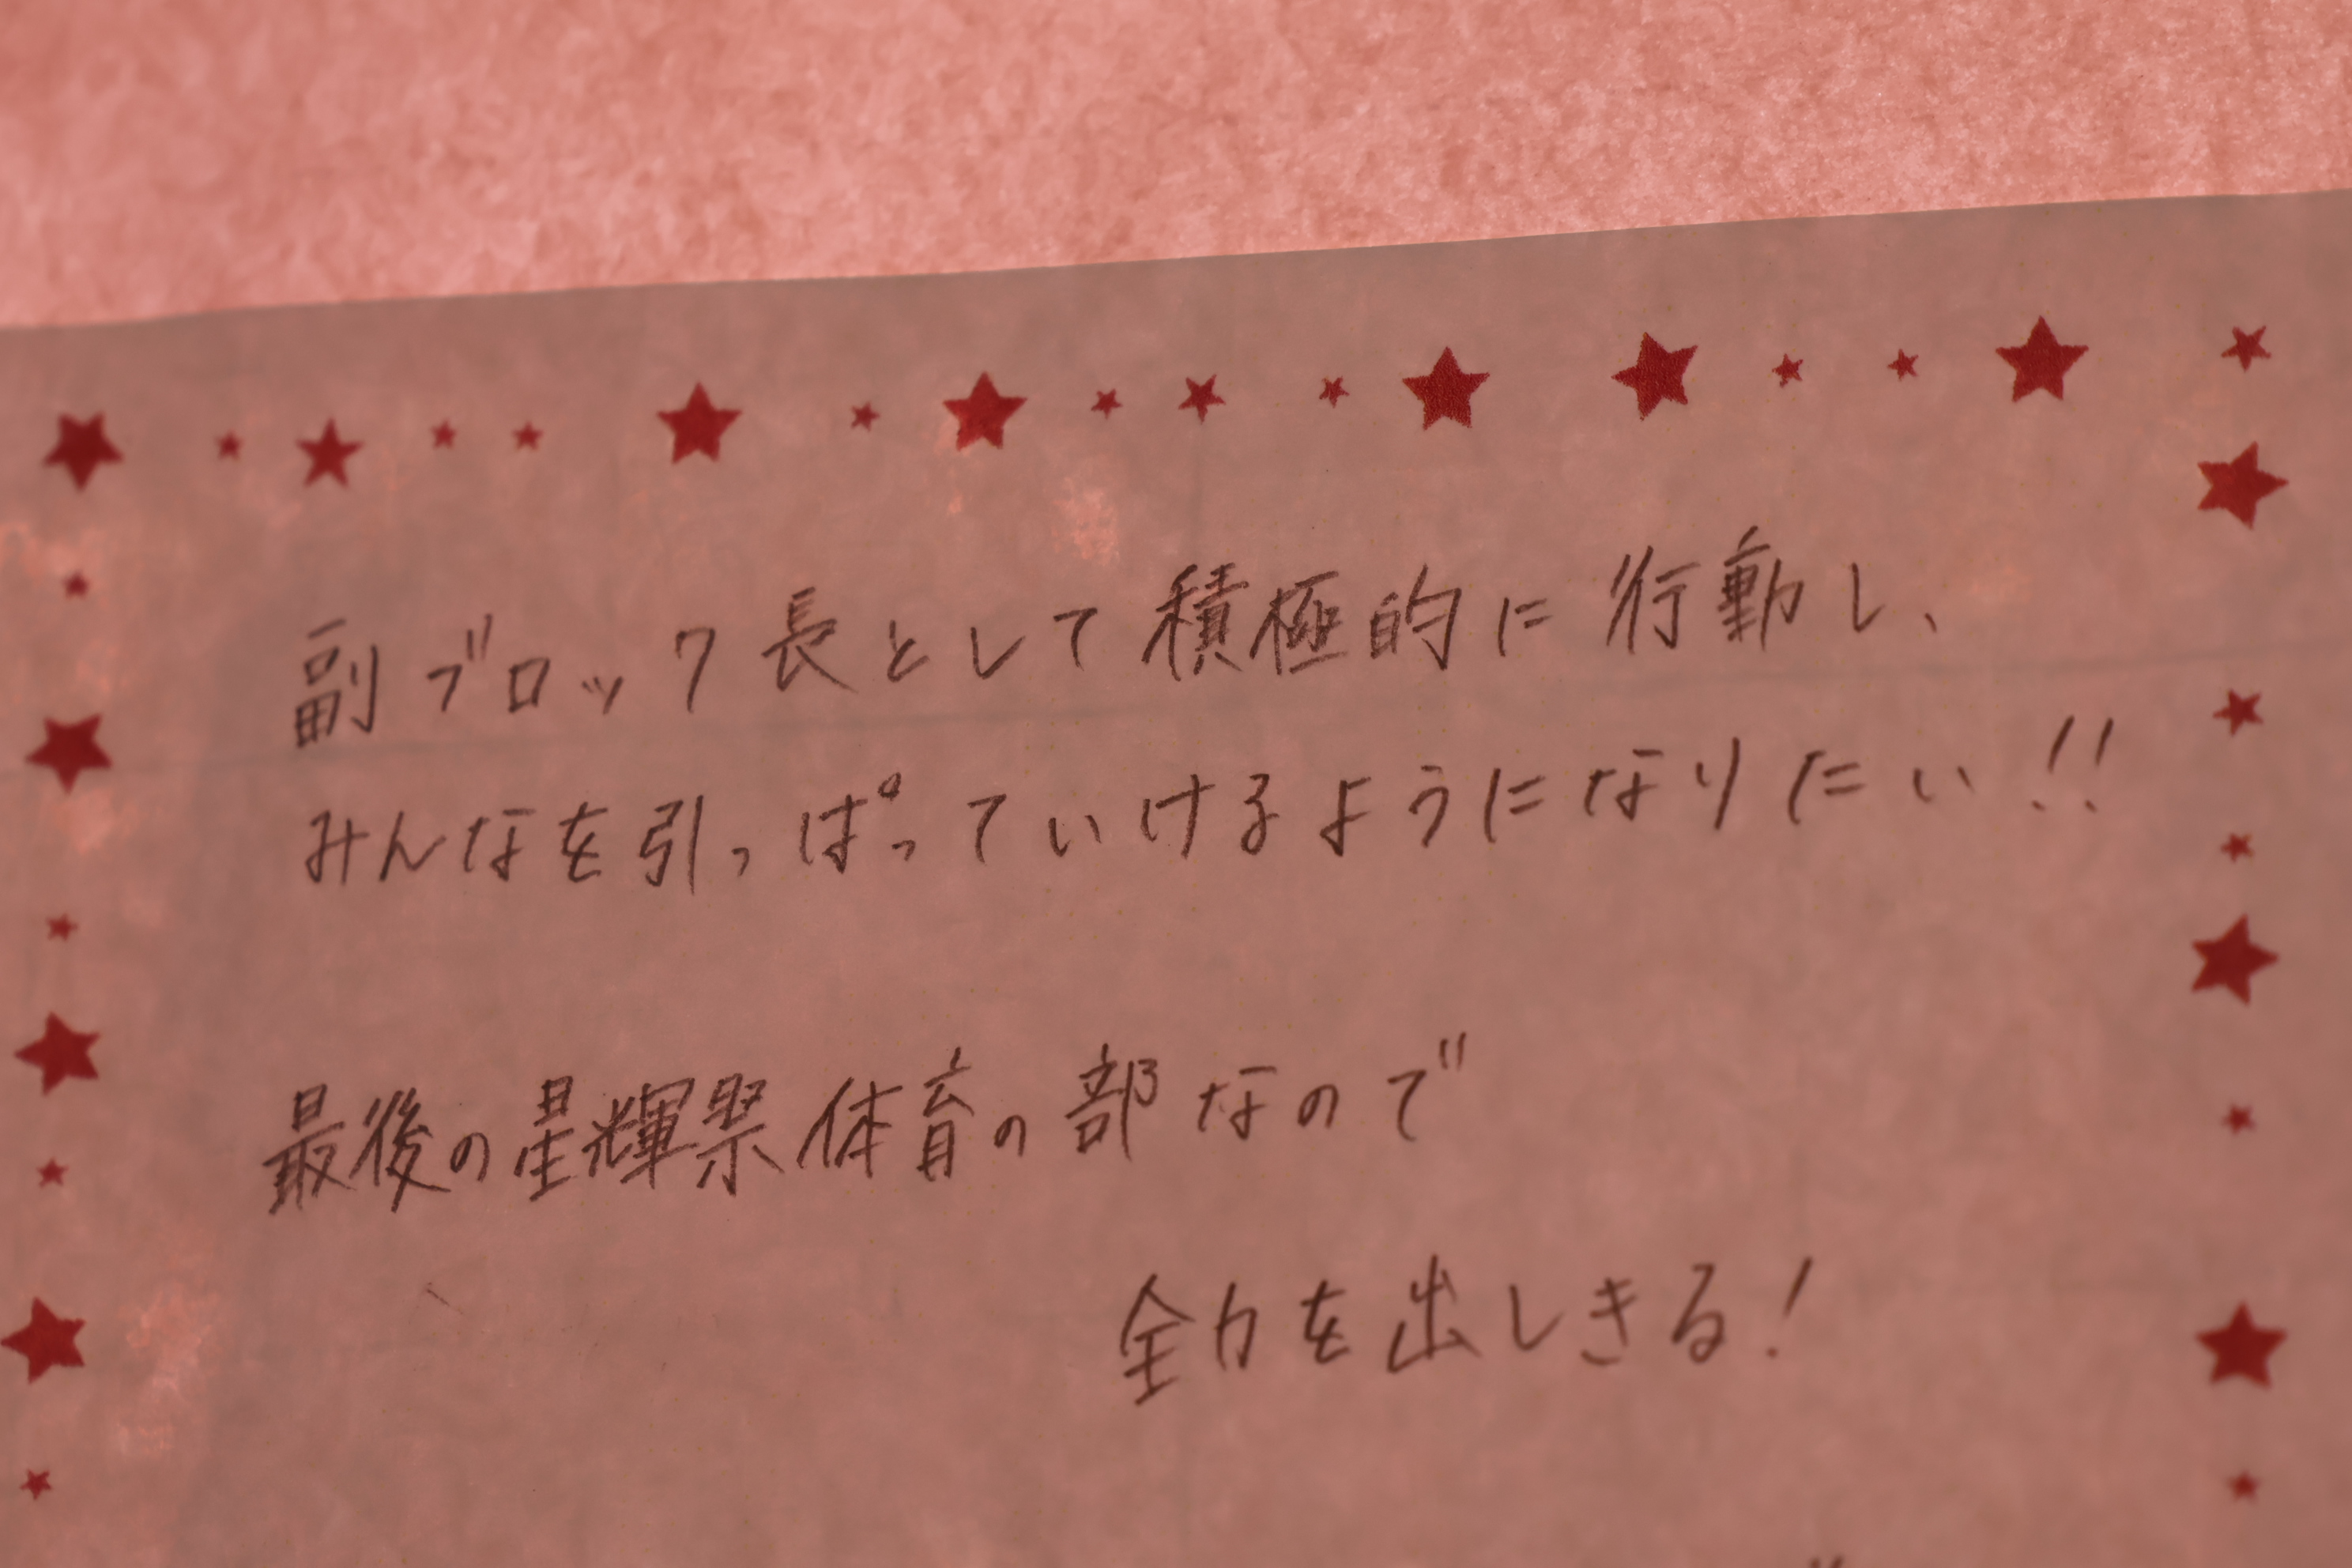 副ブロック長として積極的に行動し、
みんなを引っぱっていけるようになりたい!!
最後の星輝祭体育の部なので
全力を出しきる!